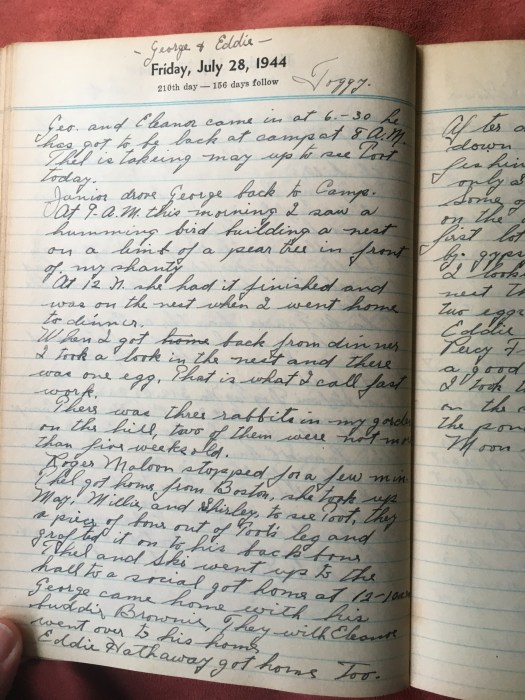 - George & Eddie -
Friday, July 28, 1944
210th day — 156 days follow
Foggy.
Geo. and Eleanor came in at 6.-30 he
has got to be back at camp at 8 A.M.
Thel is takeing may up to see Toot
today.
Junior drove George back to Camp.
At 9 A.M. this morning I saw a
humming bird building a nest
on a limb of a pear tree in front
of my shanty
At 12 N. she had it finished and
was on the nest when I went home
to dinner.
When I got home back from dinner
I took a look in the nest and there
was one egg, That is what I call fast
work.
There was three rabbits in my garde
on the hill two of them were not mo
than five weeks old.
Roger Maloon stopped for a few min
Thel got home from Boston, she took up
May, Millie, and Shirley, to see Toot, they
a piece of bone out of Toots leg and
grafted it on to his back bone
Thel and Ski went up to the
hall to a social got home at 12-10
George came home with his
buddie Brownie, They with Eleanor
went over to his home
Eddie Hathaway got home Too.
After d
down
fishin
only 2
Some of
on the
first lot
by gyps
I look
nest th
two eggs
Eddie
Percy F
a good
I took t
on the
the pon
Moon